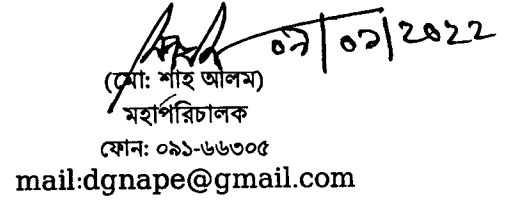 ০৯/০১/2022
(মো: শাহ আলম)
মহাপরিচালক
ফোন: ০৯১-৬৬৩০৫
mail:dgnape@gmail.com